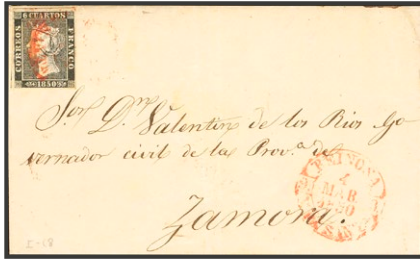 6 CUARTOS
CORREOS
FRANCO
1850
Sor. Dn. Valentin de los Rios Go
vernador civil de la Prova. de
Zamora.
4
MAR
1850